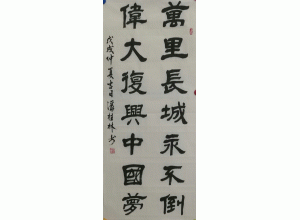 萬里長城永不倒
偉大復興中國夢
戊戌仲夏吉日潘桂林书